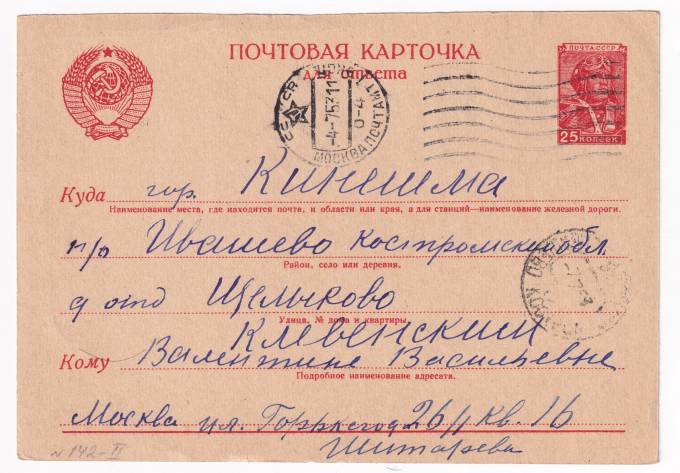 ПОЧТОВАЯ КАРТОЧКА
для ответа
ПОЧТА СССР
25 КОПЕЕК
СССР
МОСКВА ПОЧТАМТ
Куда гор. Кинешма
Наименование места, где находится почта, и области или края, а для станций—наименование железной дороги.
п/о Ивашево Костромской обл.
Район, село или деревня.
д отд Щелыково
Улица, № дома и квартиры.
Клевенский
Кому Валентине Васильевне
Подробное наименование адресата.
Москва ул. Горького д 26/1 кв. 16
Шитарева
№ 142-II